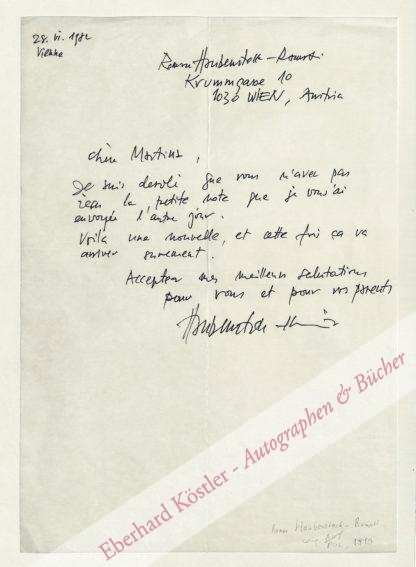 28. VI. 1982
Vienne
Roman Haubenstock-Ramati
Krummgasse 10
1030 WIEN, Austria
chère Martina,
Je suis desolé que vous n'avez pas
reçu la petite note que je vous ai
envoyée l'autre jour.
Voila une nouvelle, et cette fois ça va
arriver surement.
Accepter mes meilleurs salutations
pour vous et pour vos parents
Haubenstock-Ramati
Eberhard Köstler - Autographen & Bücher
Roman Haubenstock-Ramati
1919